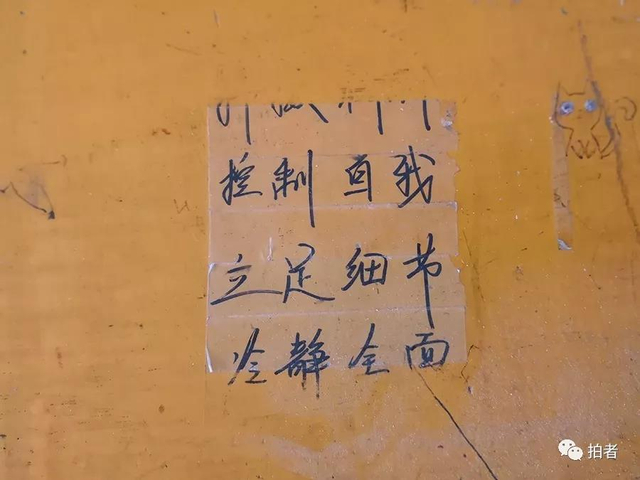 控制自我
立足细节
冷静全面
拍者